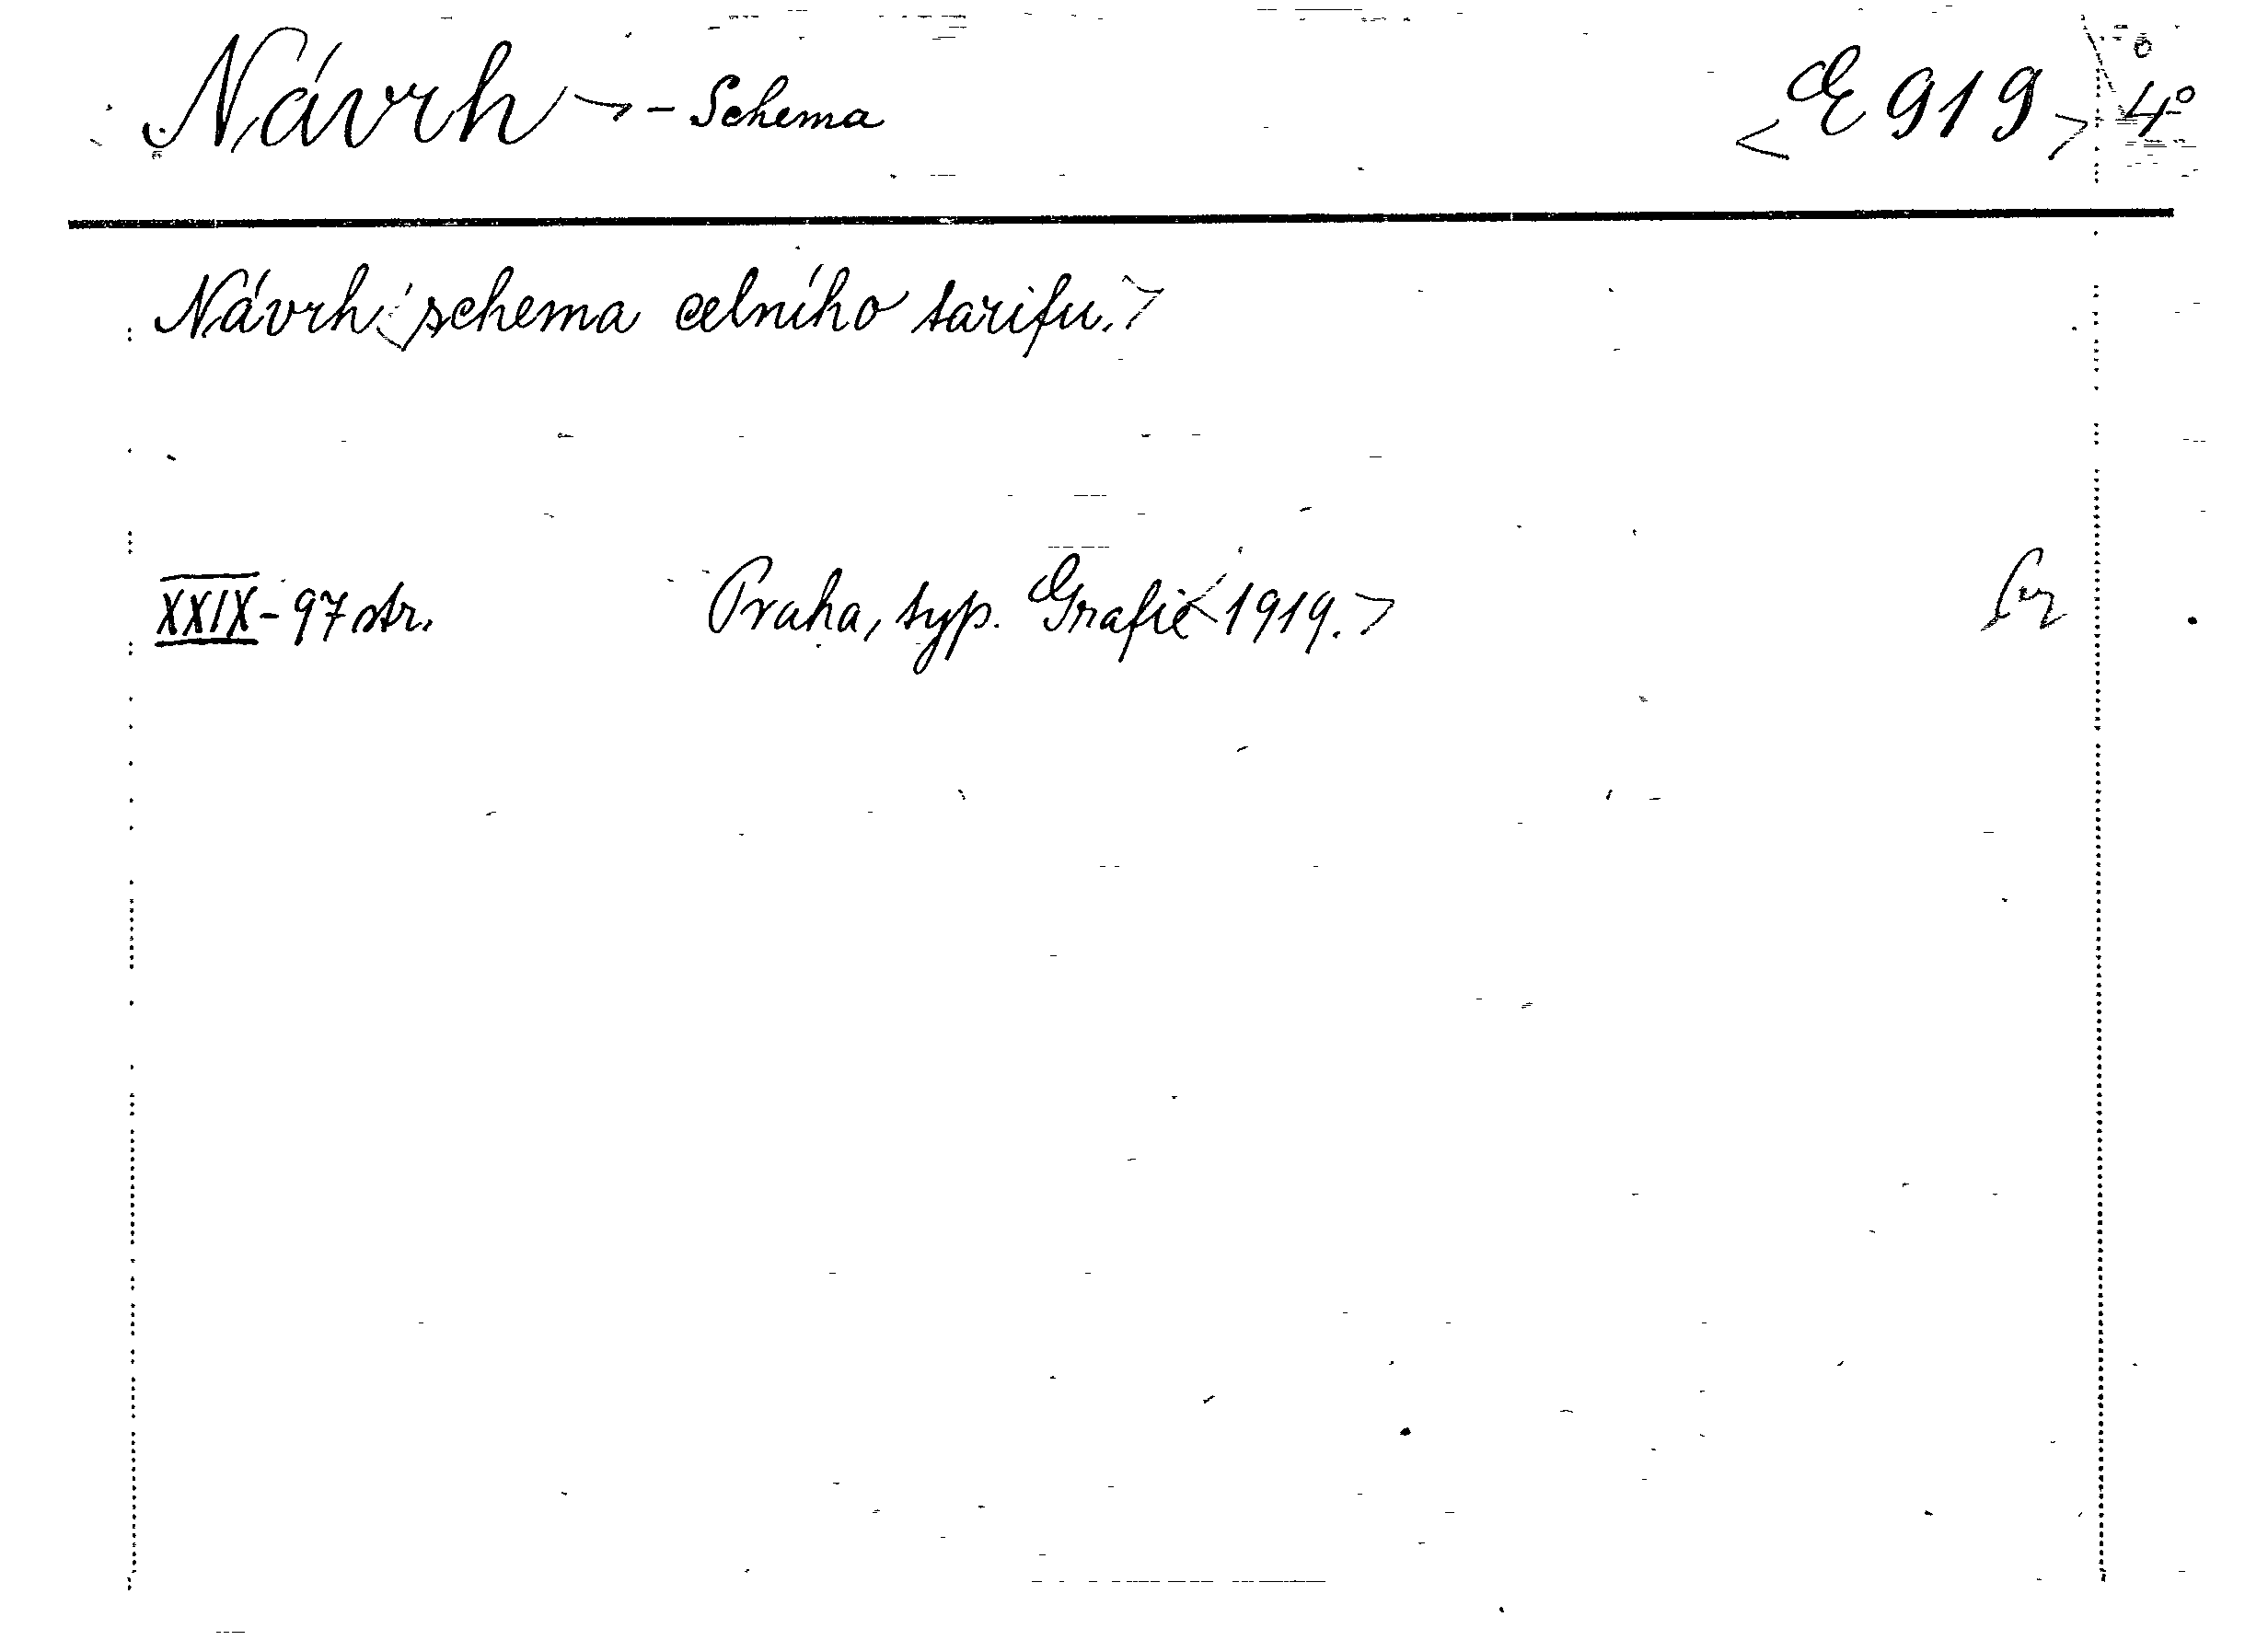 Návrh - Schema E 919 4°
Návrh schema celního tarifu.
XXIX - 97 str. Praha, typ. Grafie 1919.